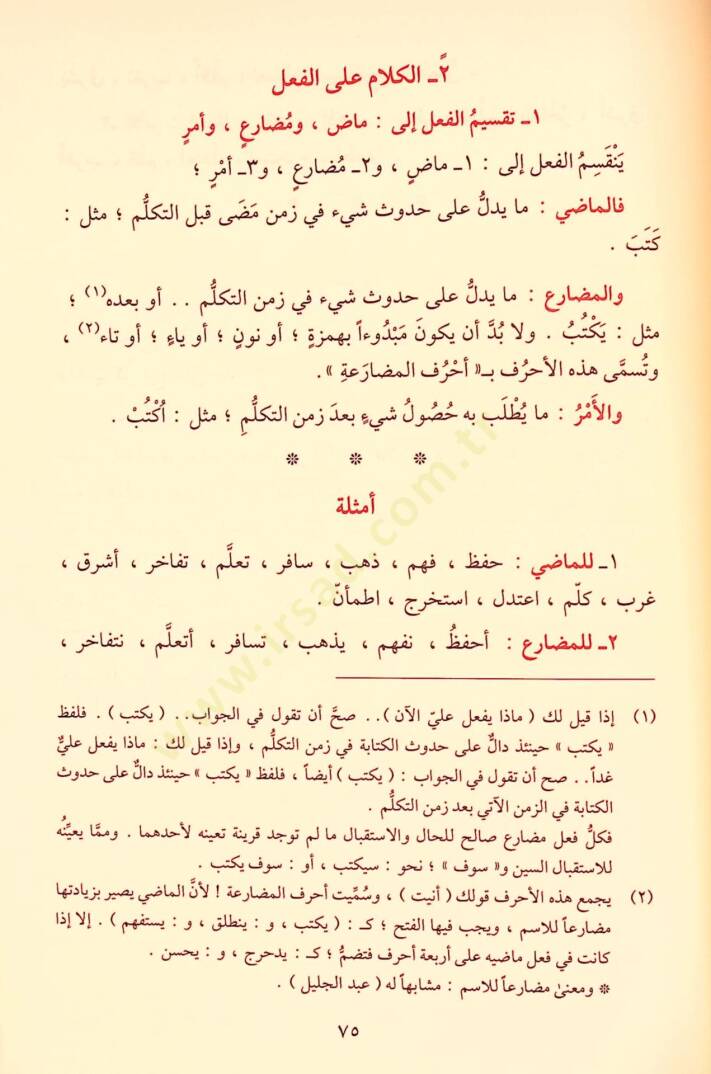 ٢ً ـ الكلام على الفعل
١ـ تقسيمُ الفعل إلى : ماض ، ومُضارعٍ ، وأمرٍ
يَنْقَسِمُ الفعل إلى : ١ـ ماضٍ ، و٢ـ مُضارعٍ ، و٣ـ أمْرٍ ؛
فالماضي : ما يدلُّ على حدوث شيء في زمن مَضَى قبل التكلُّم ؛ مثل :
كَتَبَ .
والمضارع : ما يدلُّ على حدوث شيء في زمن التكلُّم . . أو بعده(١) ؛
مثل : يَكْتُبُ . ولا بُدَّ أن يكونَ مَبْدُوءاً بهمزةٍ ؛ أو نونٍ ؛ أو ياءٍ ؛ أو تاء(٢) ،
وتُسمَّى هذه الأحرُف بـ« أحْرُف المضارَعةِ » .
والأَمْرُ : ما يُطْلَب به حُصُولُ شيءٍ بعدَ زمن التكلُّمِ ؛ مثل : اُكْتُبْ .
* * *
أمثلة
١ـ للماضي : حفظ ، فهم ، ذهب ، سافر ، تعلَّم ، تفاخر ، أشرق ،
غرب ، كلّم ، اعتدل ، استخرج ، اطمأنّ .
٢ـ للمضارع : أحفظُ ، نفهم ، يذهب ، تسافر ، أتعلَّم ، نتفاخر ،
(١) إذا قيل لك ( ماذا يفعل عليّ الآن ) . . صحَّ أن تقول في الجواب . . ( يكتب ) . فلفظ
« يكتب » حينئذ دالٌّ على حدوث الكتابة في زمن التكلُّم ، وإذا قيل لك : ماذا يفعل عليٌّ
غداً . . صح أن تقول في الجواب : ( يكتب ) أيضاً ، فلفظ « يكتب » حينئذ دالٌّ على حدوث
الكتابة في الزمن الآتي بعد زمن التكلُّم .
فكلُّ فعل مضارع صالح للحال والاستقبال ما لم توجد قرينة تعينه لأحدهما . وممَّا يعيِّنُه
للاستقبال السين و« سوف » ؛ نحو : سيكتب ، أو : سوف يكتب .
(٢) يجمع هذه الأحرف قولك ( أنيت ) ، وسُمِّيت أحرف المضارعة ! لأنَّ الماضي يصير بزيادتها
مضارعاً للاسم ، ويجب فيها الفتح ؛ كـ : ( يكتب ، و : ينطلق ، و : يستفهم ) . إلا إذا
كانت في فعل ماضيه على أربعة أحرف فتضمُّ ؛ كـ : يدحرج ، و : يحسن .
* ومعنىٰ مضارعاً للاسم : مشابهاً له ( عبد الجليل ) .
٧٥
www.irsad.com.tr